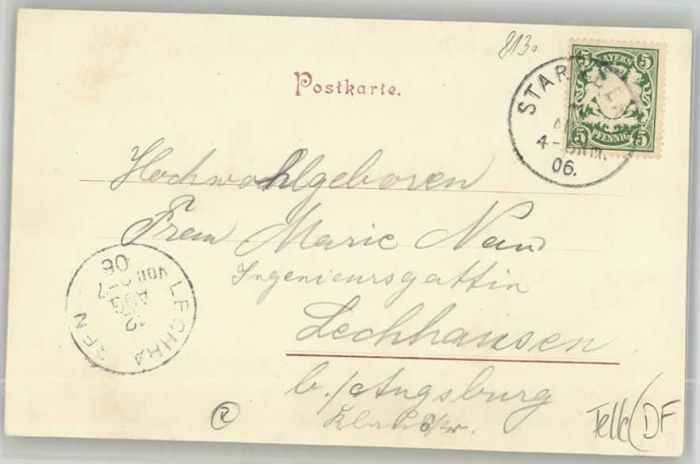 8130
Postkarte.
BAYERN
5 5
5 PFENNIG 5
STAR
4-5NM.
06.
Hochwohlgeboren
Frau Marie Nau
Ingenieursgattin
Lechhausen
b./Augsburg
LECHHA SEN
12
AUG
VOR
06
2
Telk (DF